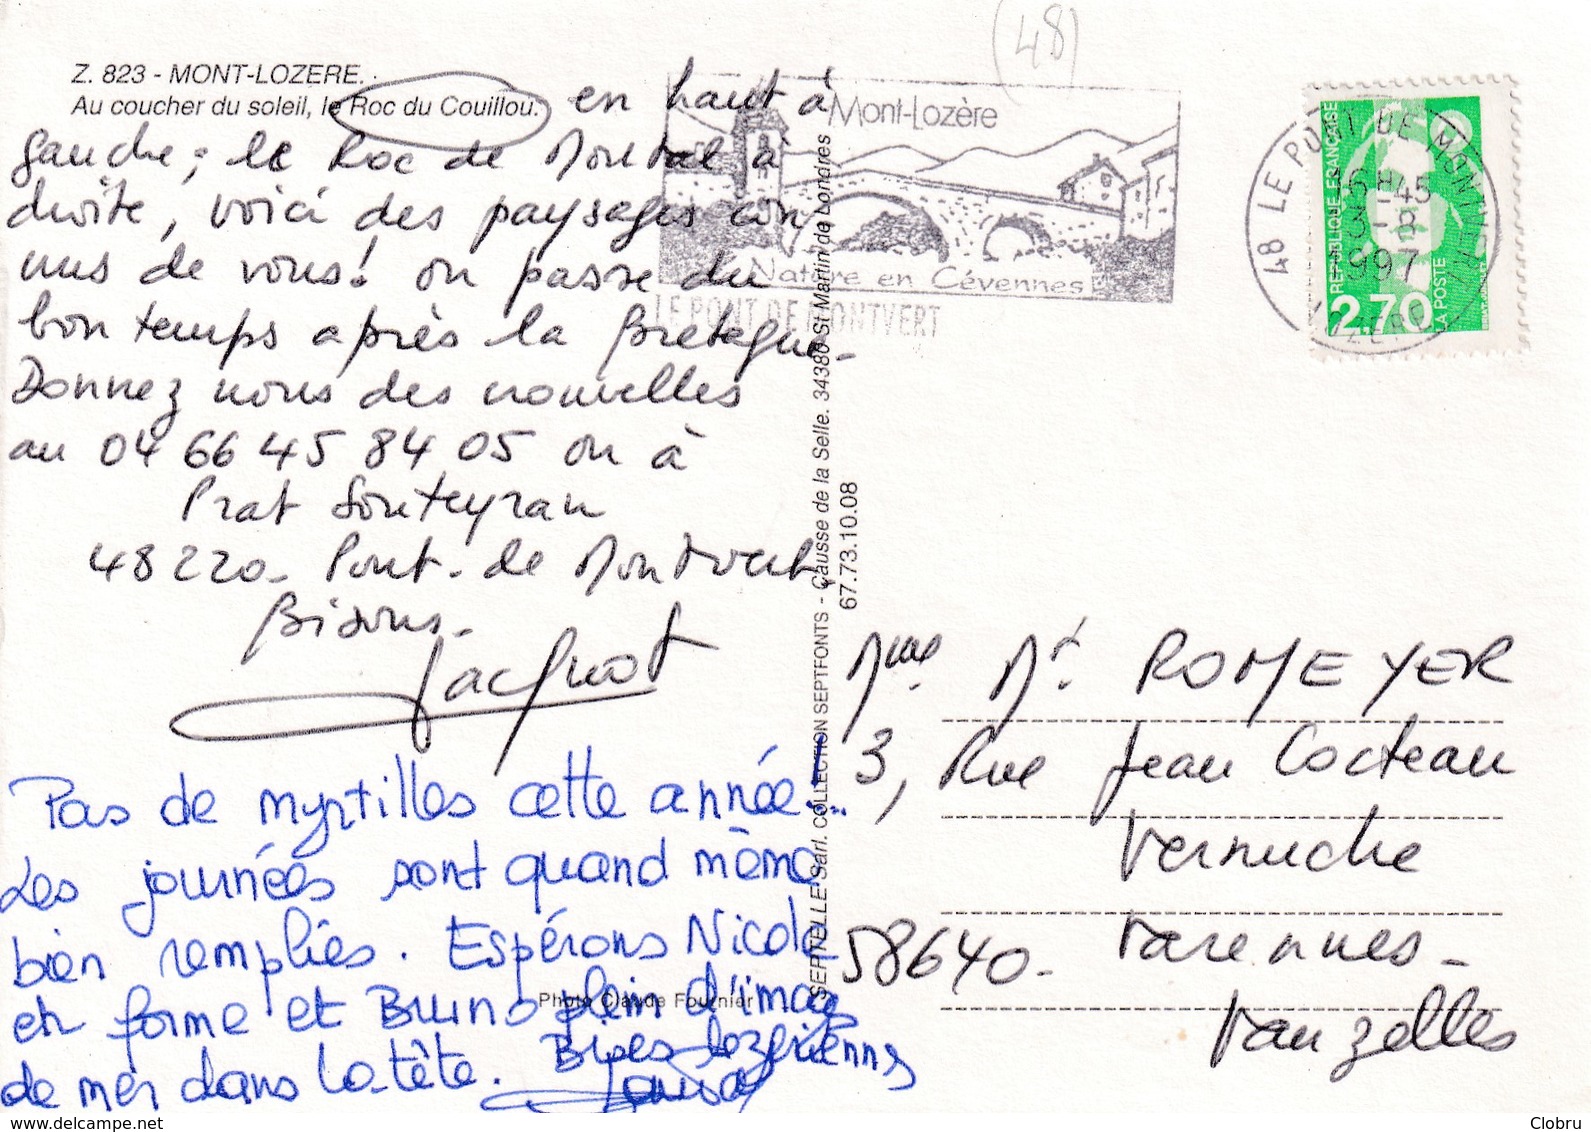 (48)
Z. 823 - MONT-LOZERE.
Au coucher du soleil, le Roc du Couillou.
en haut à
gauche ; le Roc de Montal à
droite, voici des paysages con
nus de vous! on passe du
bon temps après la Bretagne.
Donnez nous des nouvelles
au 04 66 45 84 05 ou à
Prat Souteyran
48220 - Pont. de Montvert,
Bisous.
Jacquot
Pas de myrtilles cette année!..
Les journées sont quand même
bien remplies. Espérons Nicole
en forme et Bruno plein d'images
de mer dans la tête. Bises lozériennes
Photo Claude Fournier
SEPTELLE Sarl. COLLECTION SEPTFONTS - Causse de la Selle. 34380 St Martin de Londres
67.73.10.08
Mont-Lozère
Nature en Cévennes
LE PONT DE MONTVERT
48 LE PONT DE MONTVERT
LOZERE
REPUBLIQUE FRANÇAISE
2,70
LA POSTE
Mme Mr ROMEYER
3, Rue Jean Cocteau
Vernuche
58640 - Varennes -
Vauzelles
© delcampe.net
Clobru